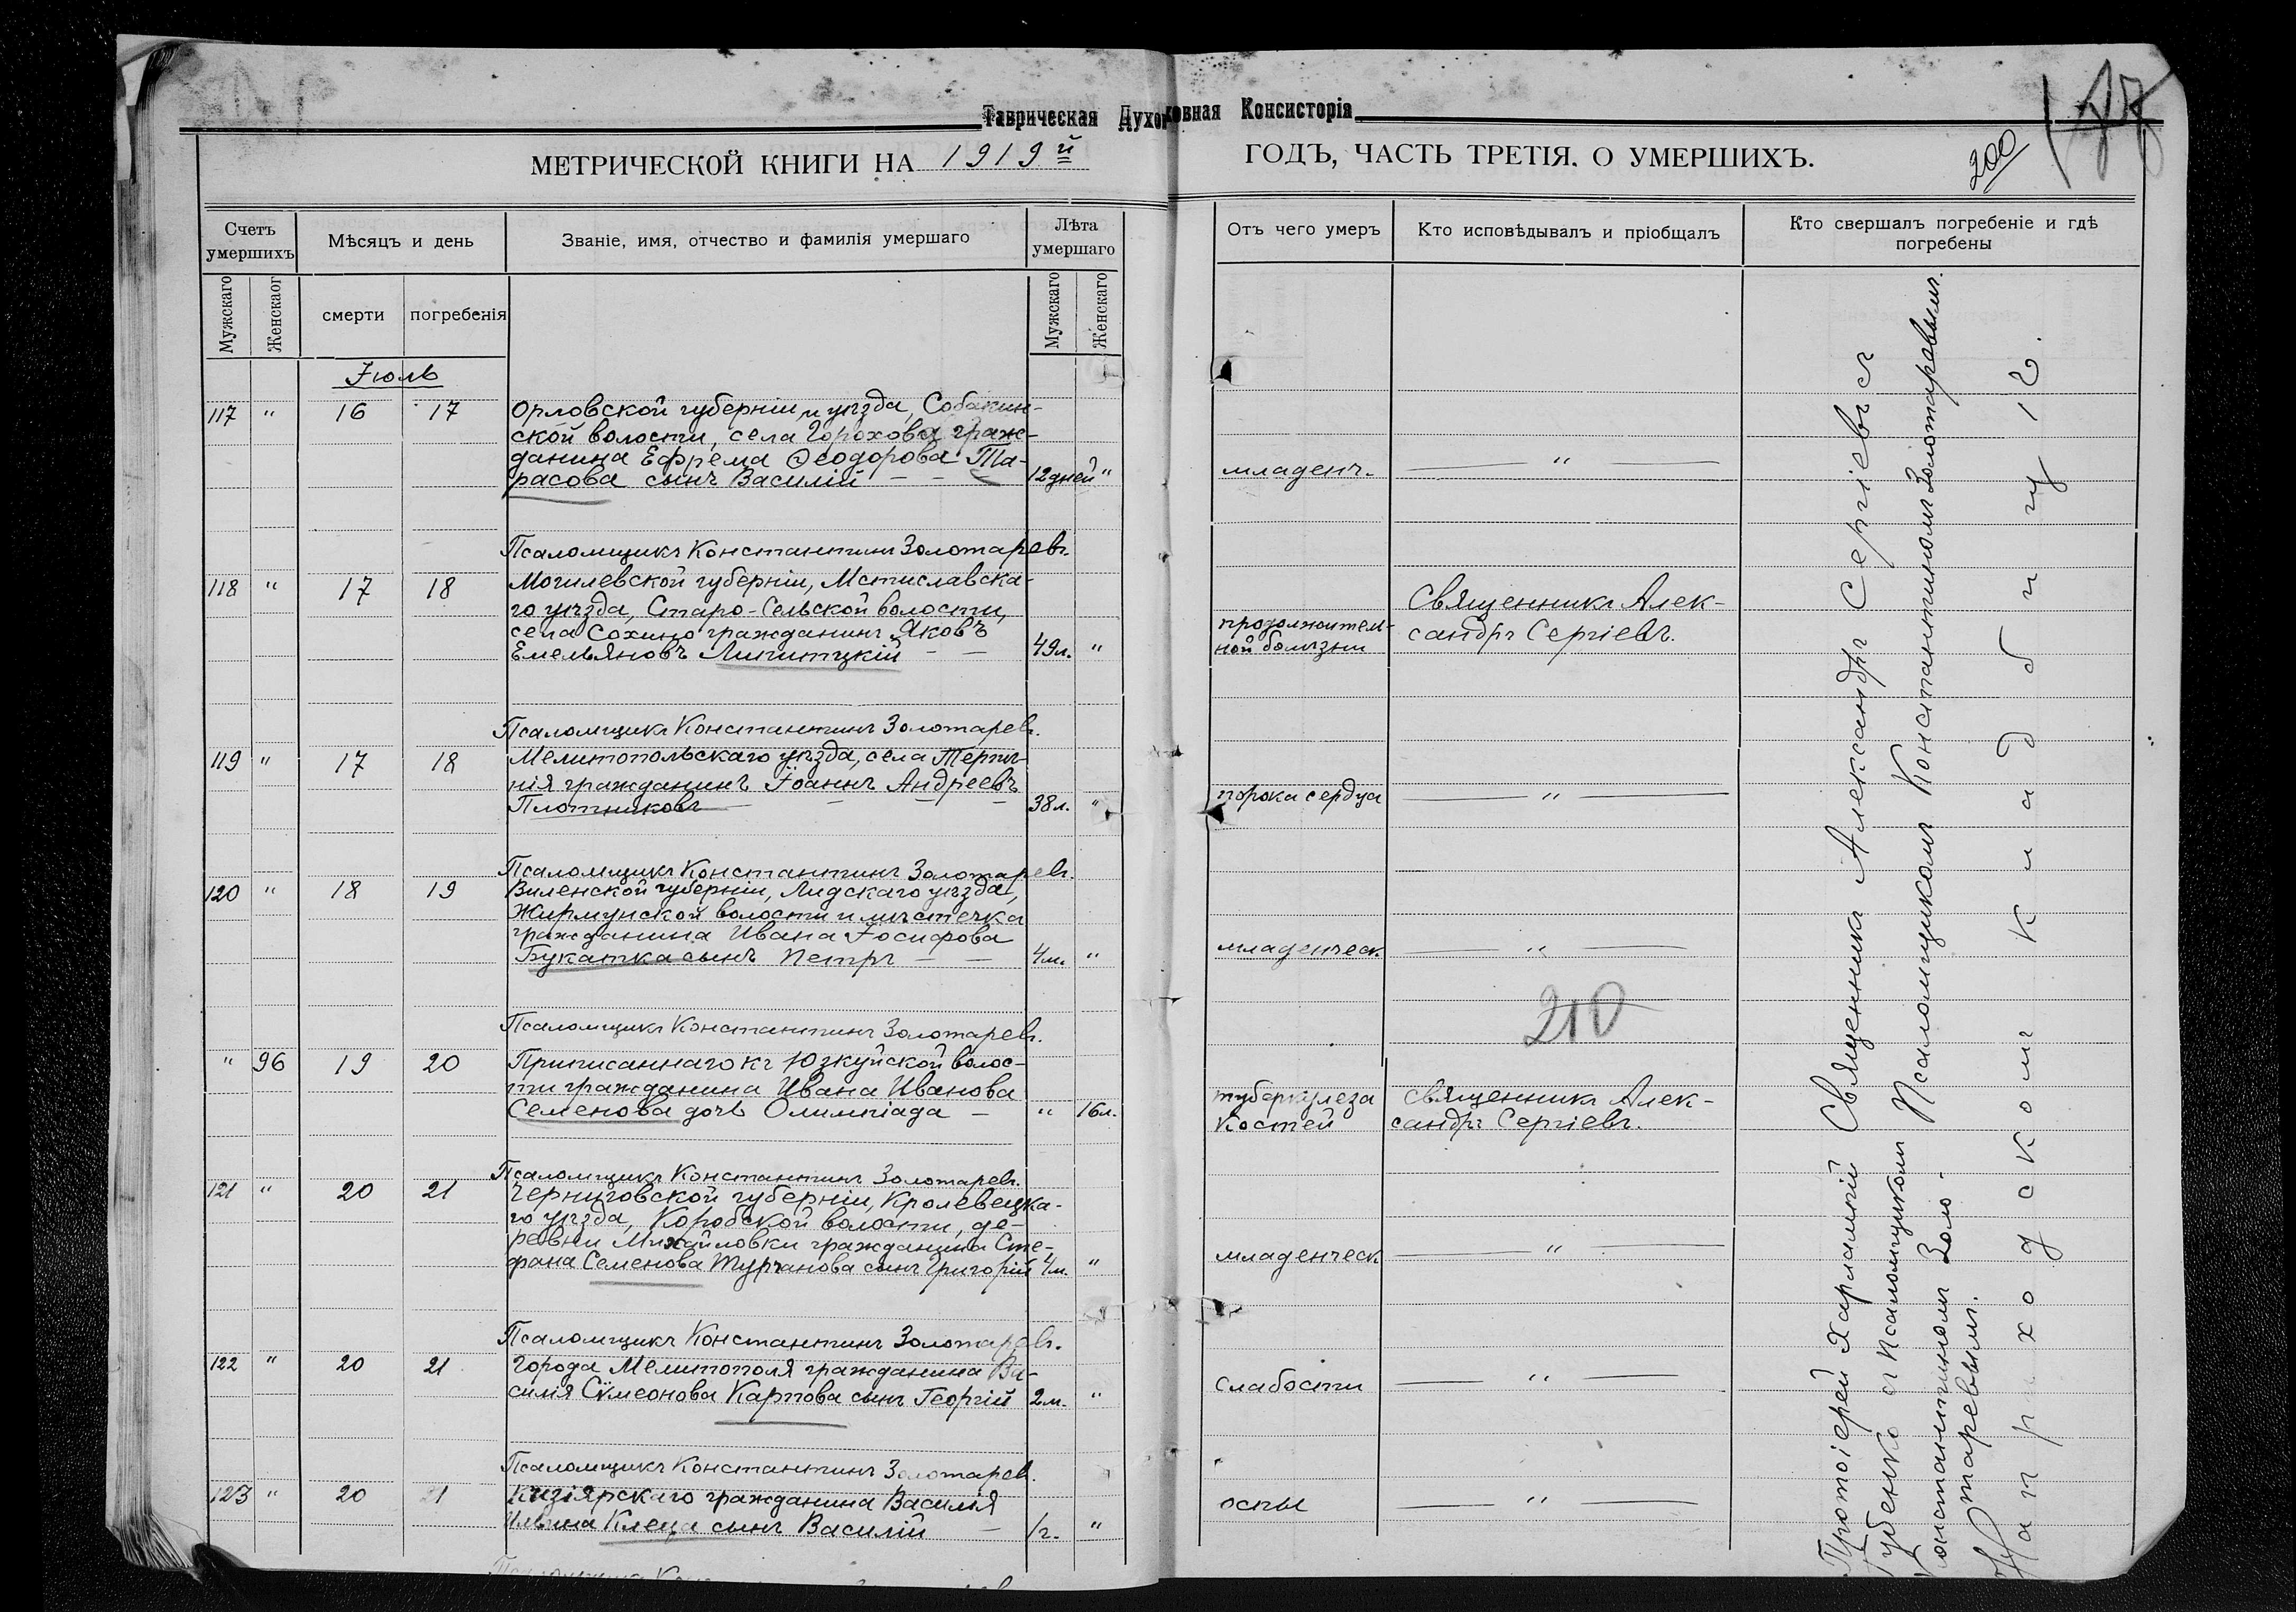 Таврическая Духовная Консисторія
МЕТРИЧЕСКОЙ КНИГИ НА 1919й ГОДЪ, ЧАСТЬ ТРЕТІЯ, О УМЕРШИХЪ.
200
Счетъ умершихъ
Мужскаго
Женскаог
Мѣсяцъ и день
смерти
погребенія
Званіе, имя, отчество и фамилія умершаго
Лѣта умершаго
Мужскаго
Женскаго
Отъ чего умеръ
Кто исповѣдывалъ и пріобщалъ
Кто свершалъ погребеніе и гдѣ
погребены
Іюль
117 " 16 17
Орловской губерніи и уѣзда, Собакин-
ской волости, села Горохова граж-
данина Ефрема Ѳеодорова Та-
расова сынъ Василій — —
12 дней "
младенч.
— " —
Псаломщикъ Константинъ Золотаревъ.
118 " 17 18
Могилевской губерніи, Мстиславска-
го уѣзда, Старо-Сельской волости,
села Сохино гражданинъ Яковъ
Емельяновъ Липитцкій — —
49 л. "
продолжитель-
ной болѣзни
Священникъ Алек-
сандръ Сергіевъ.
Псаломщикъ Константинъ Золотаревъ.
119 " 17 18
Мелитопольскаго уѣзда, села Терпѣ-
нія гражданинъ Іоаннъ Андреевъ
Плотниковъ — — —
38 л. "
порока сердца
— " —
Псаломщикъ Константинъ Золотаревъ.
120 " 18 19
Виленской губерніи, Лидскаго уѣзда,
Жирмунской волости и мѣстечка
гражданина Ивана Іосифова
Букатка сынъ Петръ — —
4 м. "
младенческ.
— " —
210
Псаломщикъ Константинъ Золотаревъ.
" 96 19 20
Приписаннаго къ Юзкуйской волос-
ти гражданина Ивана Иванова
Семенова дочь Олимпіада —
" 16 л.
туберкулеза
костей
Священникъ Алек-
сандръ Сергіевъ.
Псаломщикъ Константинъ Золотаревъ.
121 " 20 21
Черниговской губерніи, Кролевецка-
го уѣзда, Коробской волости, де-
ревни Михайловки гражданина Сте-
фана Семенова Турчанова сынъ Григорій
4 м. "
младенческ.
— " —
Псаломщикъ Константинъ Золотаревъ.
122 " 20 21
Города Мелитополя гражданина Ва-
силія Сѵмеонова Карпова сынъ Георгій
2 м. "
слабости
— " —
Псаломщикъ Константинъ Золотарев.
123 " 20 21
Кизіярскаго гражданина Василія
Ильина Клеца сынъ Василій —
1 г. "
оспы
— " —
Протоіерей Харлампій Священникъ Александръ Сергіевъ съ
Губенко съ псаломщикомъ Псаломщикомъ Константиномъ Золотаревымъ.
Константиномъ Золо-
таревымъ.
На приходскомъ кладбищѣ.